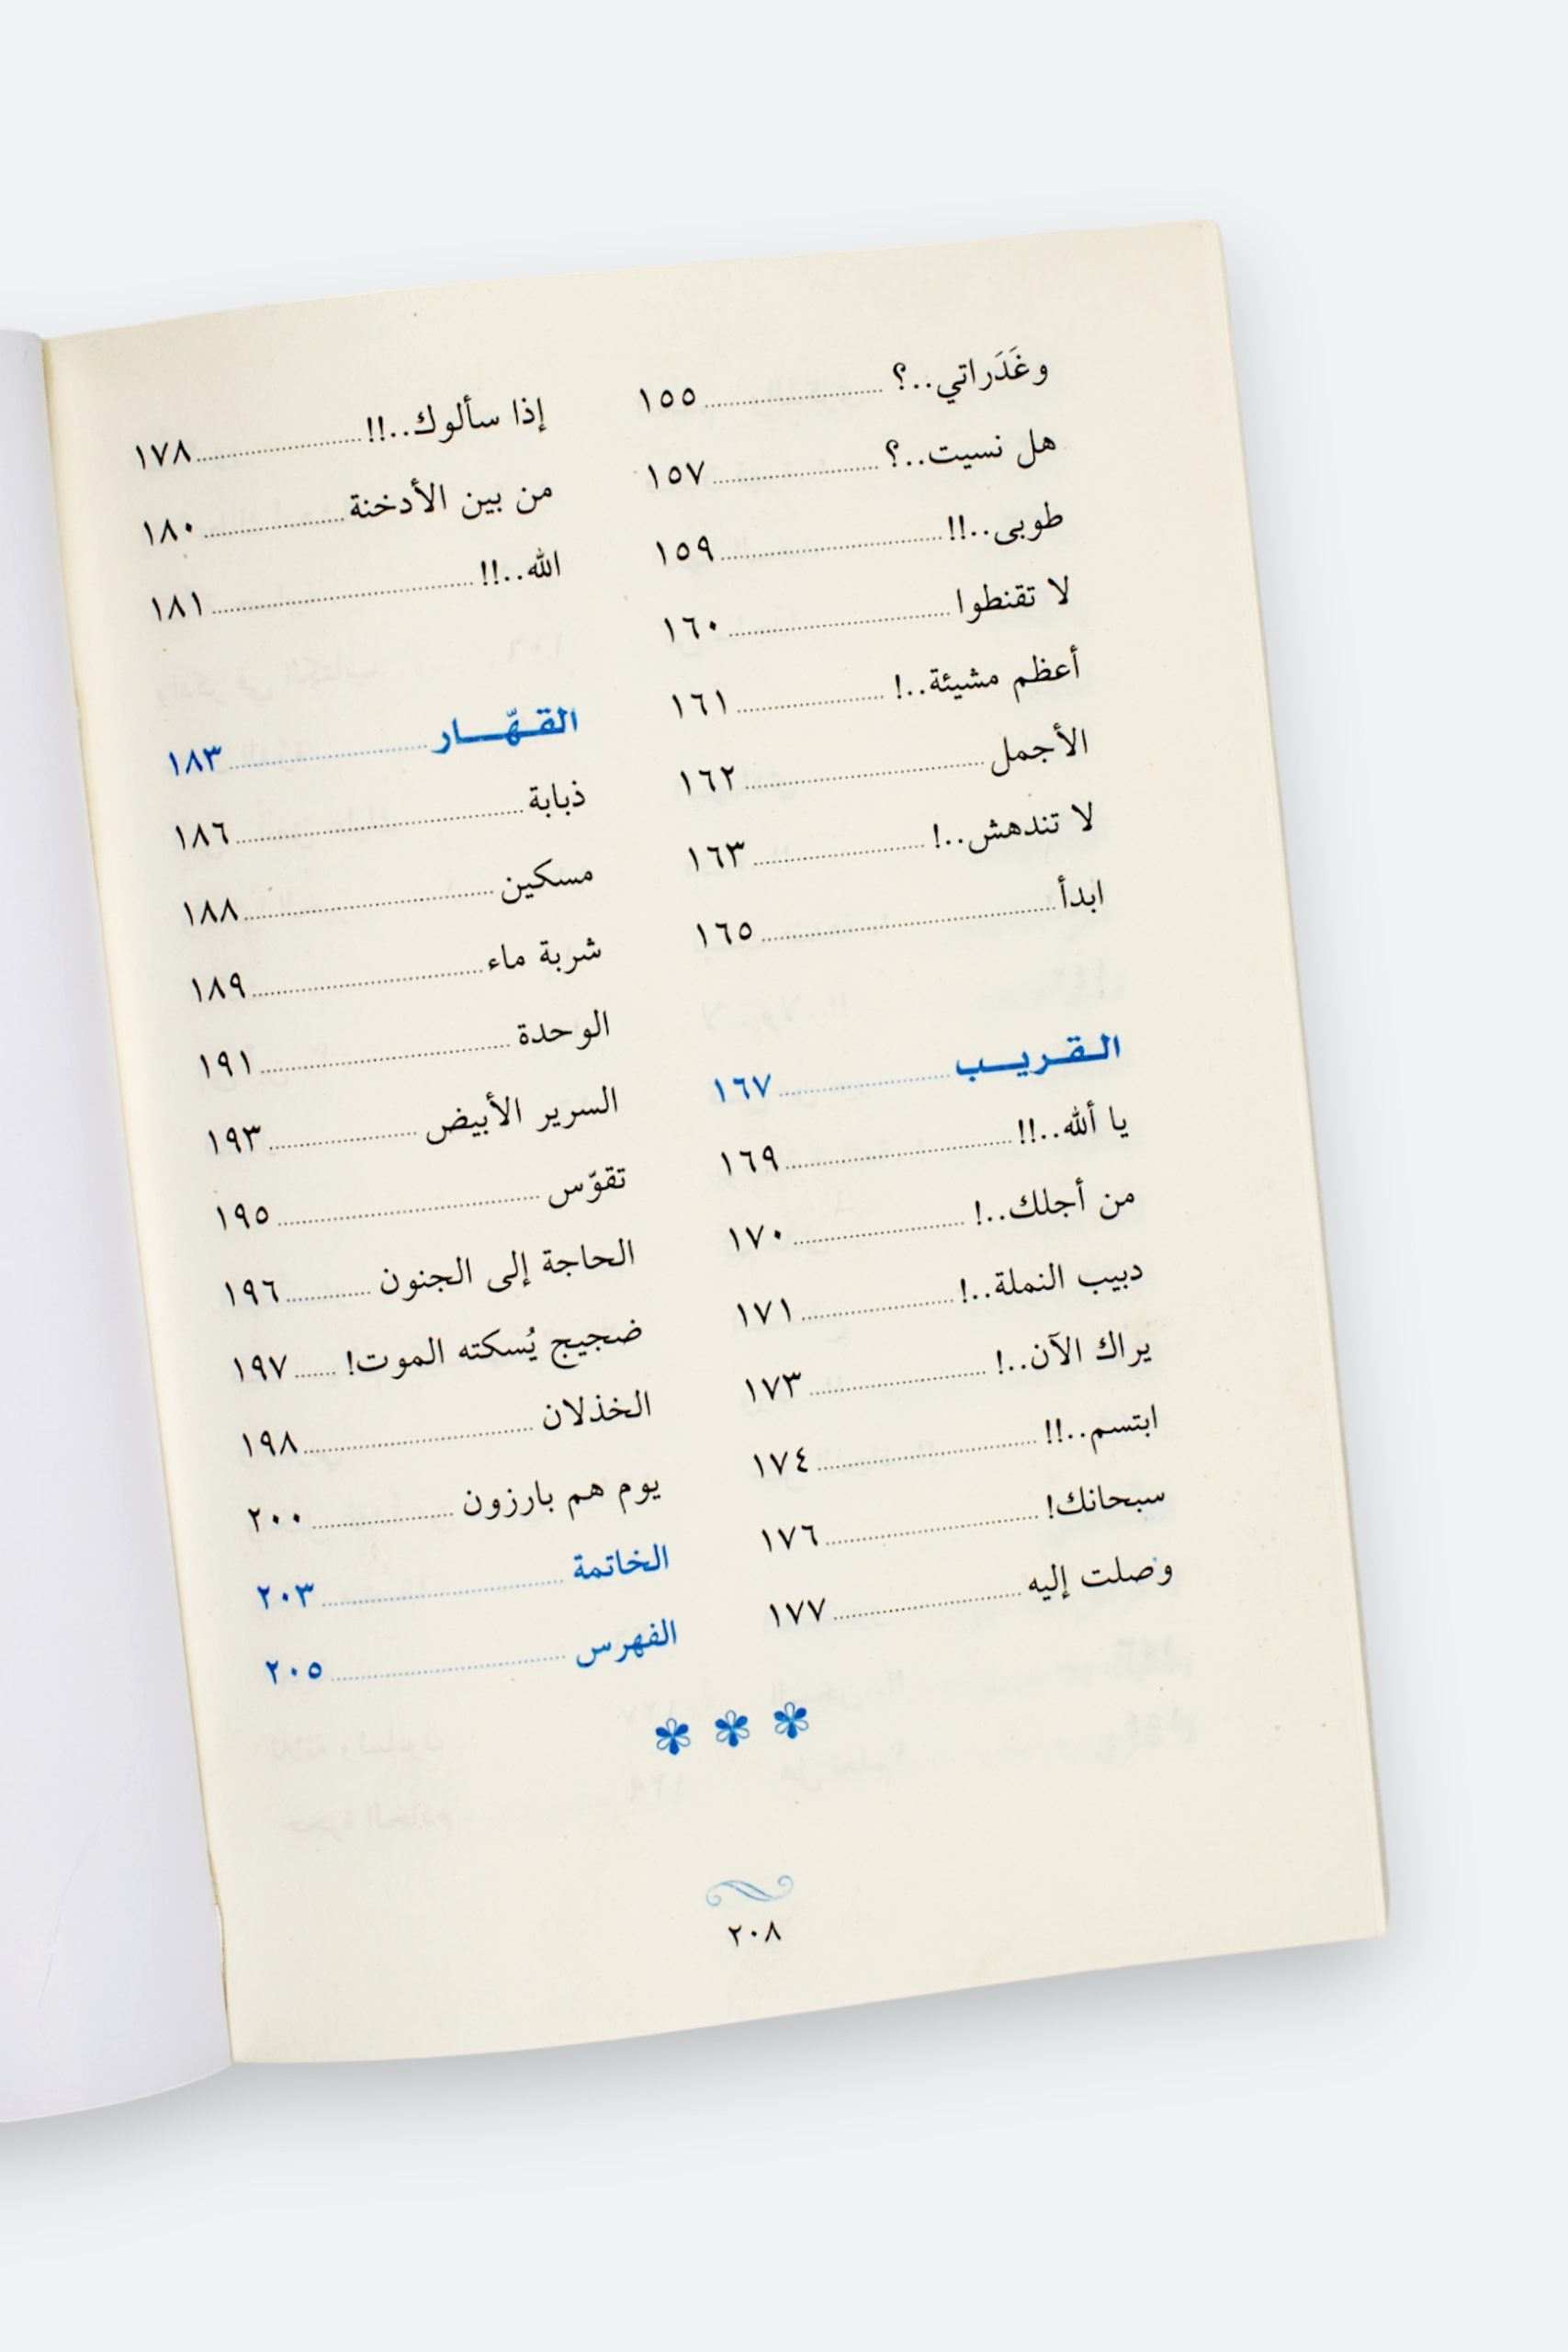 وغَدَراتي..؟ ١٥٥
هل نسيت..؟ ١٥٧
طوبى..!! ١٥٩
لا تقنطوا ١٦٠
أعظم مشيئة..! ١٦١
الأجمل ١٦٢
لا تندهش..! ١٦٣
ابدأ ١٦٥
القريب ١٦٧
يا ألله..!! ١٦٩
من أجلك..! ١٧٠
دبيب النملة..! ١٧١
يراك الآن..! ١٧٣
ابتسم..!! ١٧٤
سبحانك! ١٧٦
وصلت إليه ١٧٧
إذا سألوك..!! ١٧٨
من بين الأدخنة ١٨٠
الله..!! ١٨١
القهّار ١٨٣
ذبابة ١٨٦
مسكين ١٨٨
شربة ماء ١٨٩
الوحدة ١٩١
السرير الأبيض ١٩٣
تقوّس ١٩٥
الحاجة إلى الجنون ١٩٦
ضجيج يُسكته الموت! ١٩٧
الخذلان ١٩٨
يوم هم بارزون ٢٠٠
الخاتمة ٢٠٣
الفهرس ٢٠٥
٢٠٨